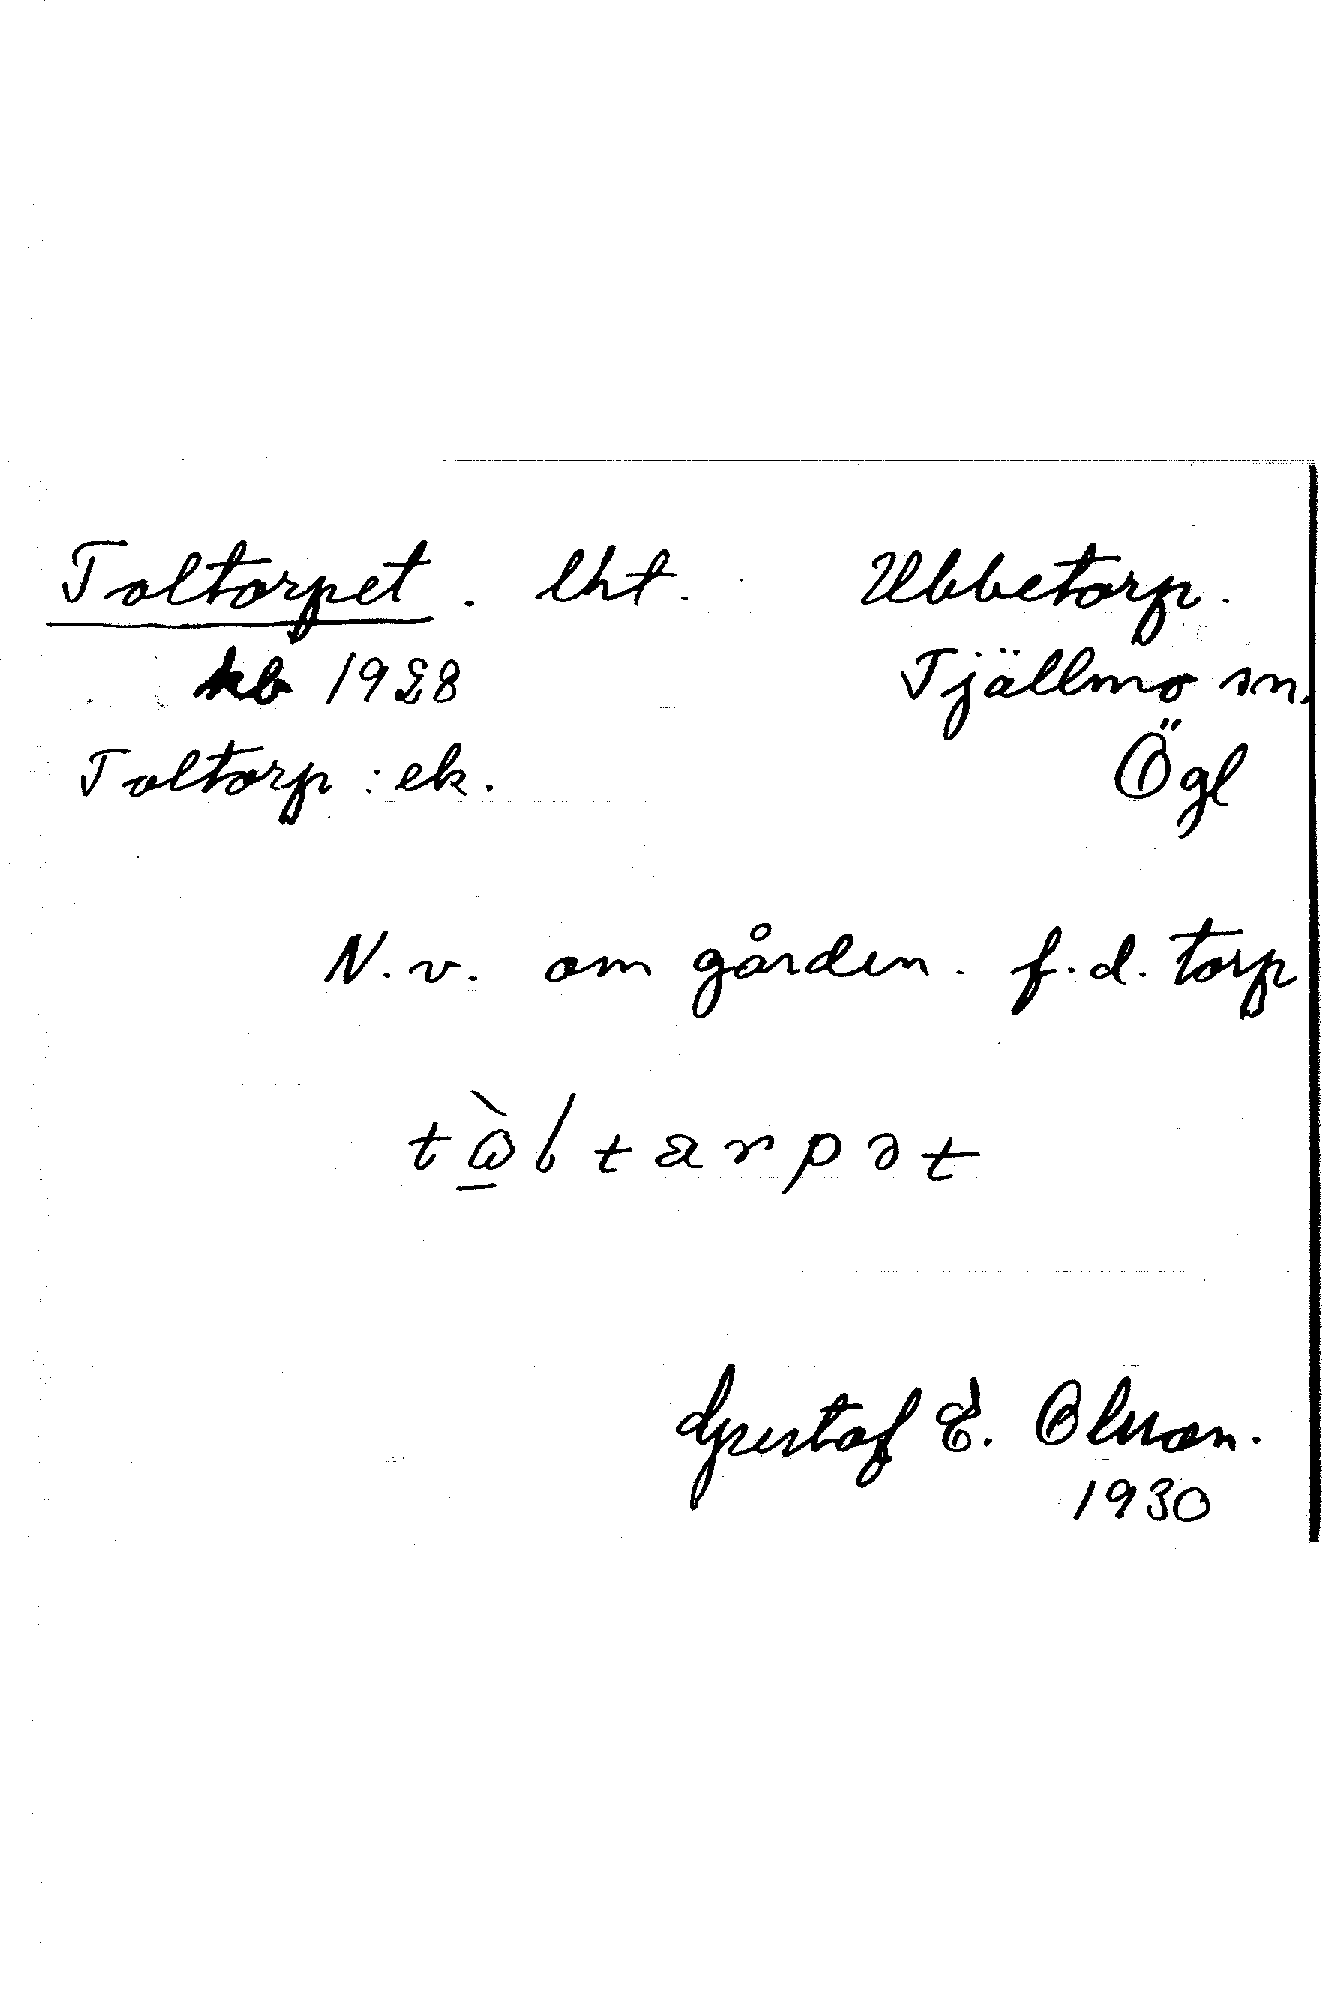 Toltorpet. lht. Ubbetorp.
kb 1928 Tjällmo sn.
Toltorp : ek. Ögl
N. v. om gården. f. d. torp
tὼ̲ltarpət
Gustaf E. Olsson.
1930